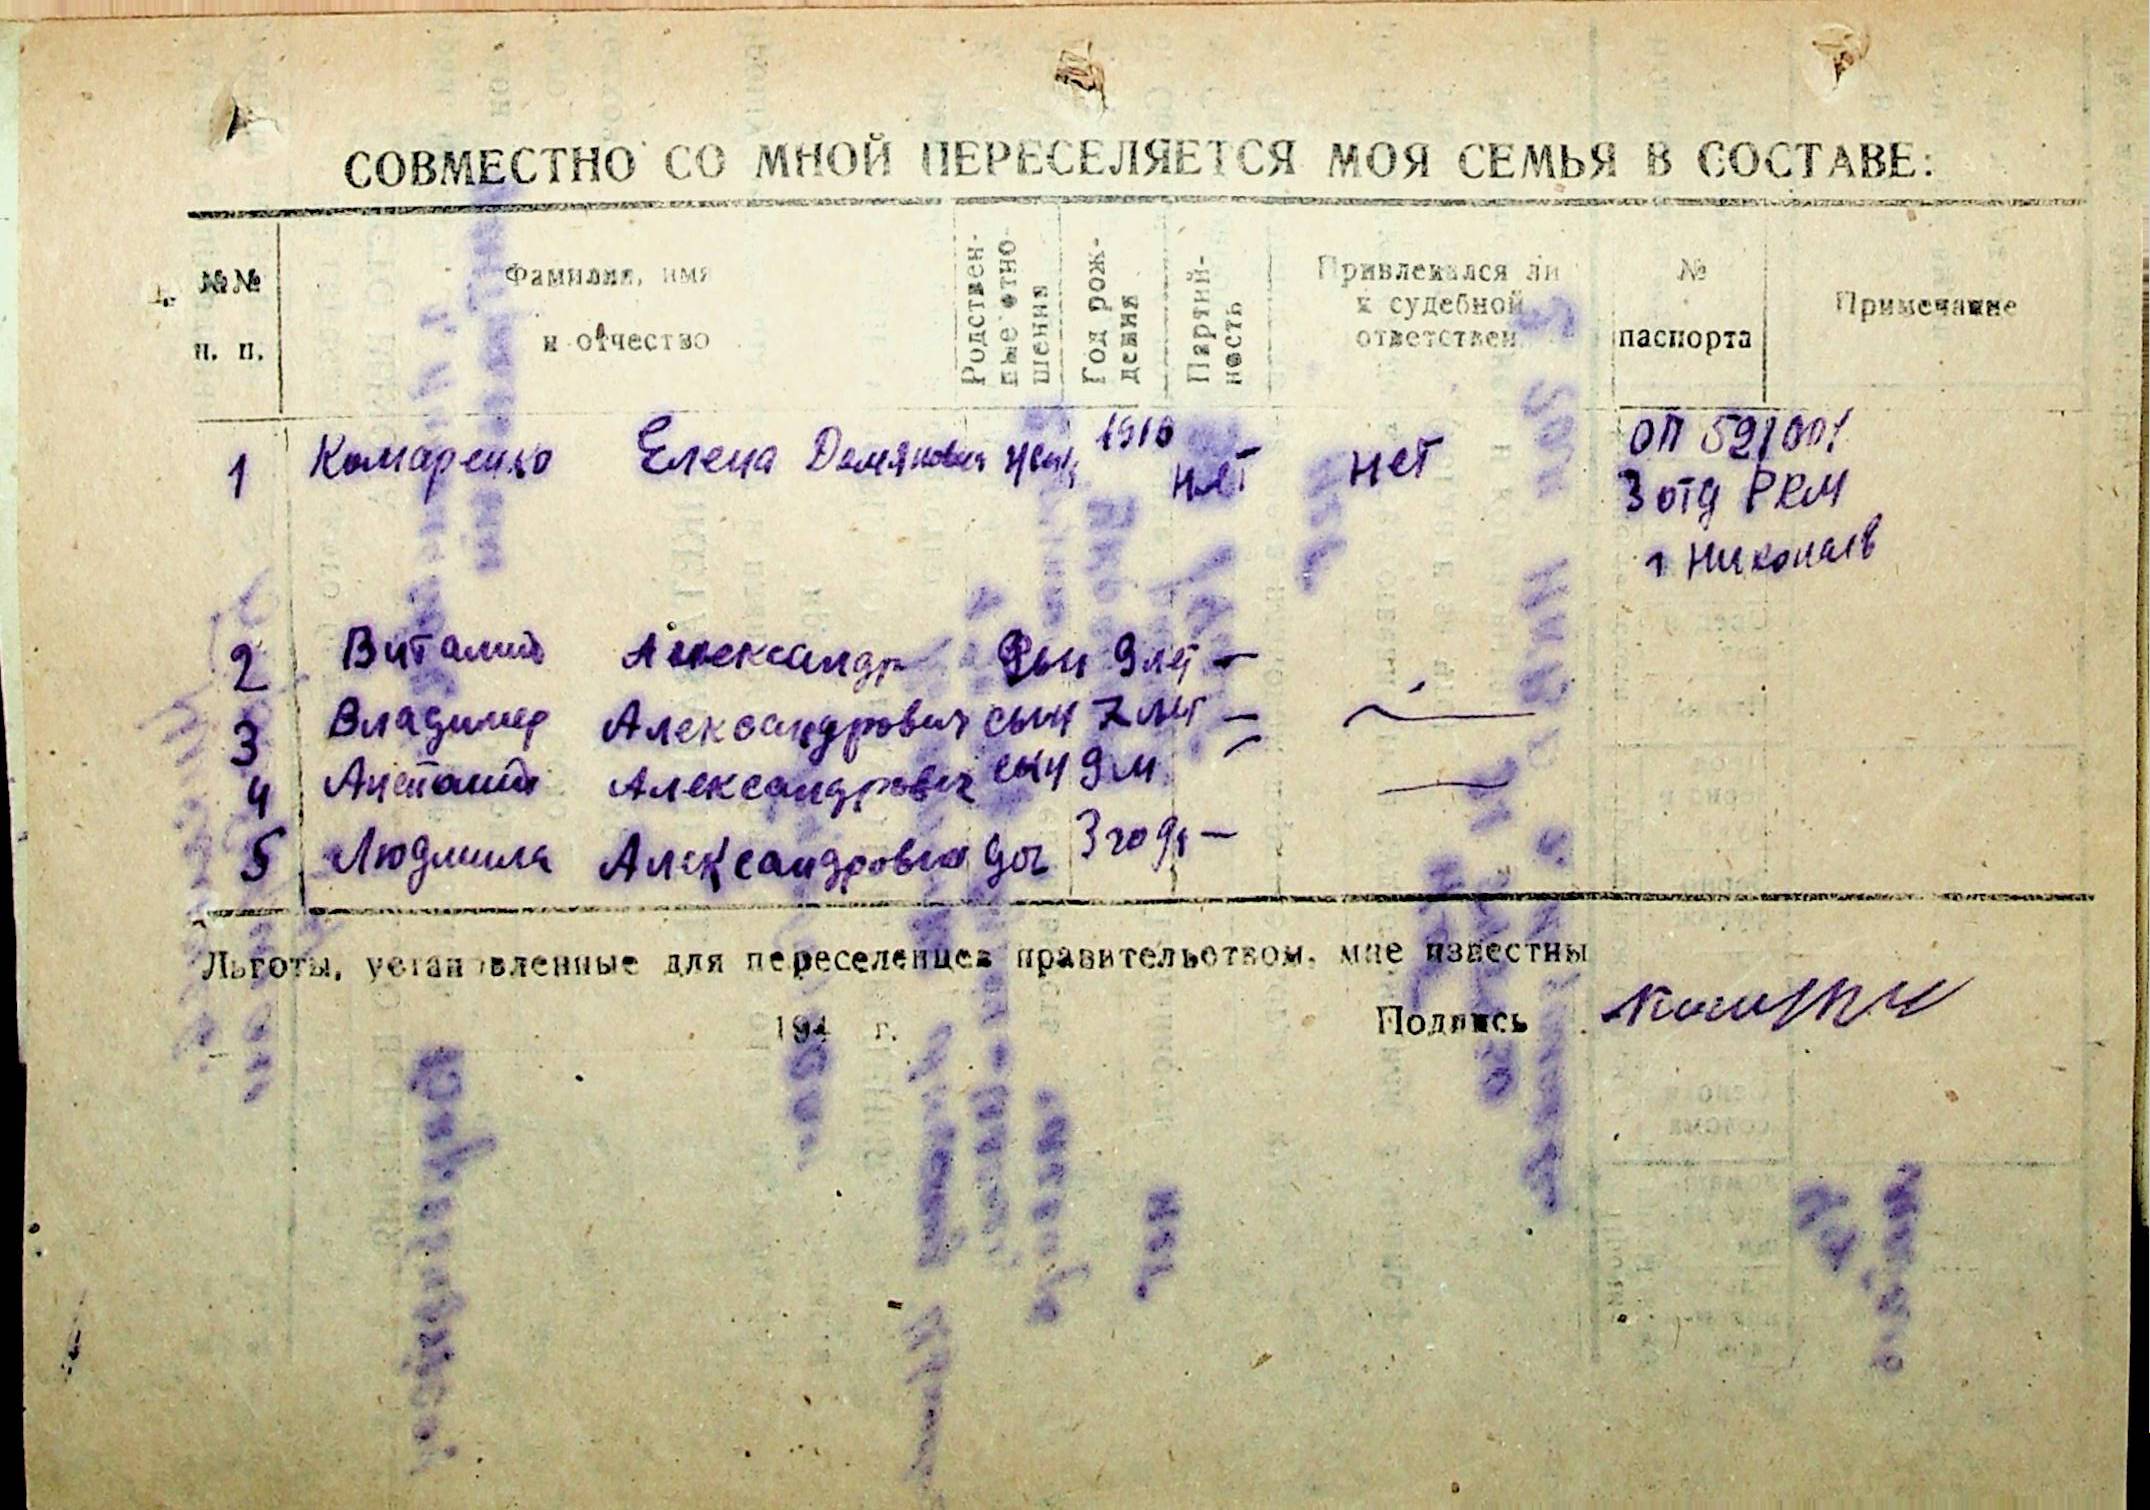 СОВМЕСТНО СО МНОЙ ПЕРЕСЕЛЯЕТСЯ МОЯ СЕМЬЯ В СОСТАВЕ:
№№ п. п.
Фамилия, имя и отчество
Родствен-ные отно-шения
Год рож-дения
Партий-ность
Привлекался ли к судебной ответствен.
№ паспорта
Примечание
1 Комаренко Елена Демяновна жена 1910 нет нет ОП 521001
3 отд РКМ
г Николаев
2 Виталий Александр сын 9 лет —
3 Владимер Александрович сын 7 лет — —
4 Анатолий Александрович сын 9 м — —
5 Людмила Александровна доч 3 года —
Льготы, установленные для переселенцев правительством, мне известны
194 г. Подпись